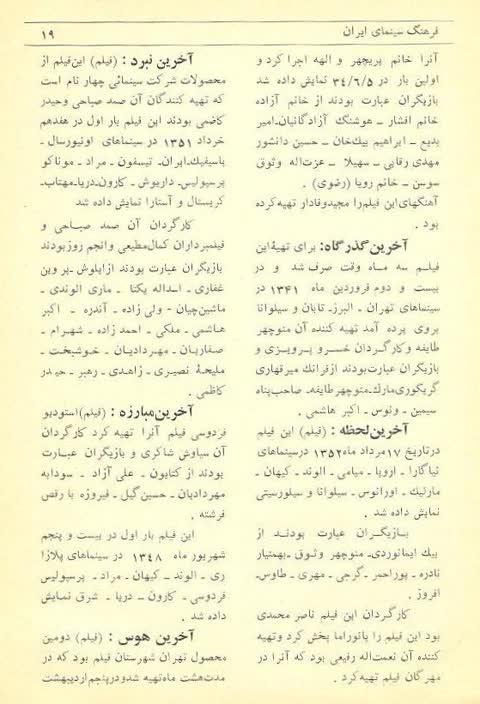 فرهنگ سینمای ایران
۱۹
آنرا خانم پریچهر و الهه اجرا کرد و
اولین بار در ۳۴/۶/۵ نمایش داده شد
بازیگران عبارت بودند از خانم آزاده
خانم افشار ـ هوشنگ آزادگانیان ـ امیر
بدیع ـ ابراهیم بیك‌خان ـ حسین دانشور
مهدی رقابی ـ سهیلا ـ عزت‌اله وثوق
سوسن ـ خانم رویا (رضوی) .
آهنگهای این فیلم را مجید وفادار تهیه کرده
بود .
آخرین گذرگاه: برای تهیهٔ این
فیلم سه ماه وقت صرف شد و در
بیست و دوم فروردین ماه ۱۳۴۱ در
سینماهای تهران ـ البرز ـ تابان و سیلوانا
بروی پرده آمد تهیه کننده آن منوچهر
طایفه و کارگردان خسرو پرویزی و
بازیگران عبارت بودند از فرانك میرقهاری
گریگوری مارك ـ منوچهر طایفه ـ صاحب‌پناه
سیمین ـ ونوس ـ اکبر هاشمی .
آخرین لحظه: (فیلم) این فیلم
در تاریخ ۱۷ مرداد ماه ۱۳۵۲ در سینماهای
نیاگارا ـ اروپا ـ میامی ـ الوند ـ کیهان ـ
مارلیك ـ اورانوس ـ سیلوانا و سیلورسیتی
نمایش داده شد .
بازیگران عبارت بودند از
بیك ایمانوردی ـ منوچهر وثوق ـ بهمنیار
نادره ـ پوراحمر ـ گرجی ـ مهری ـ طاوس ـ
افروز .
کارگردان این فیلم ناصر محمدی
بود این فیلم را پانوراما پخش کرد و تهیه
کننده آن نعمت‌اله رفیعی بود که آنرا در
مهرگان فیلم تهیه کرد .
آخرین نبرد : (فیلم) این فیلم از
محصولات شرکت سینمائی چهار نام است
که تهیه کنندگان آن صمد صباحی و حیدر
کاظمی بودند این فیلم بار اول در هفدهم
خرداد ۱۳۵۱ در سینماهای اونیورسال ـ
پاسیفیك ـ ایران ـ تیسفون ـ مراد ـ موناکو
پرسپولیس ـ داریوش ـ کارون ـ دریا ـ مهتاب ـ
کریستال و آستارا نمایش داده شد
کارگردان آن صمد صباحی و
فیلمبرداران کمال مطیعی و انجم روز بودند
بازیگران عبارت بودند از ایلوش ـ پروین
غفاری ـ اسداله یکتا ـ ماری الوندی ـ
ماشین‌چیان ـ ولی زاده ـ آندره ـ اکبر
هاشمی ـ ملکی ـ احمد زاده ـ شهرام ـ
صفاریان ـ مهردادیان ـ خوشبخت ـ
ملیحهٔ نصیری ـ زاهدی ـ رهبر ـ حیدر
کاظمی .
آخرین مبارزه : (فیلم) استودیو
فردوسی فیلم آنرا تهیه کرد کارگردان
آن سیاوش شاکری و بازیگران عبارت
بودند از کتایون ـ علی آزاد ـ سودابه
مهردادیان ـ حسین گیل ـ فیروزه با رقص
فرشته .
این فیلم بار اول در بیست و پنجم
شهریور ماه ۱۳۴۸ در سینماهای پلازا
ری ـ الوند ـ کیهان ـ مراد ـ پرسپولیس
فردوسی ـ کارون ـ دریا ـ شرق نمایش
داده شد .
آخرین هوس : (فیلم) دومین
محصول تهران شهرستان فیلم بود که در
مدت هشت ماه تهیه شد و در پنجم اردیبهشت